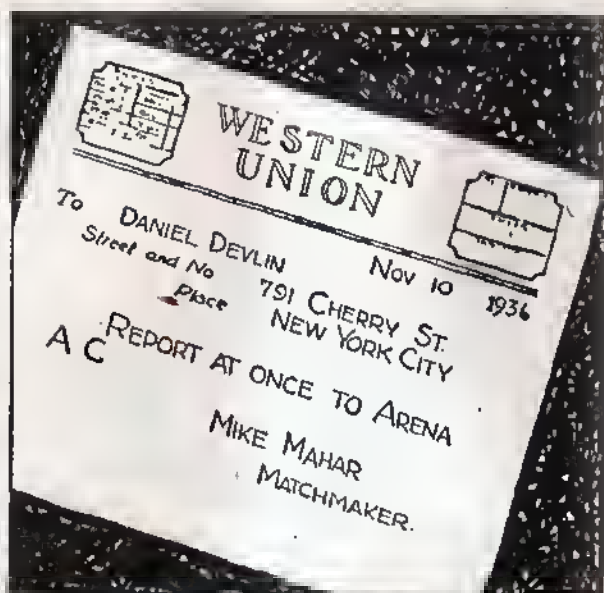 WESTERN
UNION
Nov 10 1936
To DANIEL DEVLIN
Street and No 791 CHERRY ST.
Place NEW YORK CITY
REPORT AT ONCE TO ARENA
A C
MIKE MAHAR
MATCHMAKER.